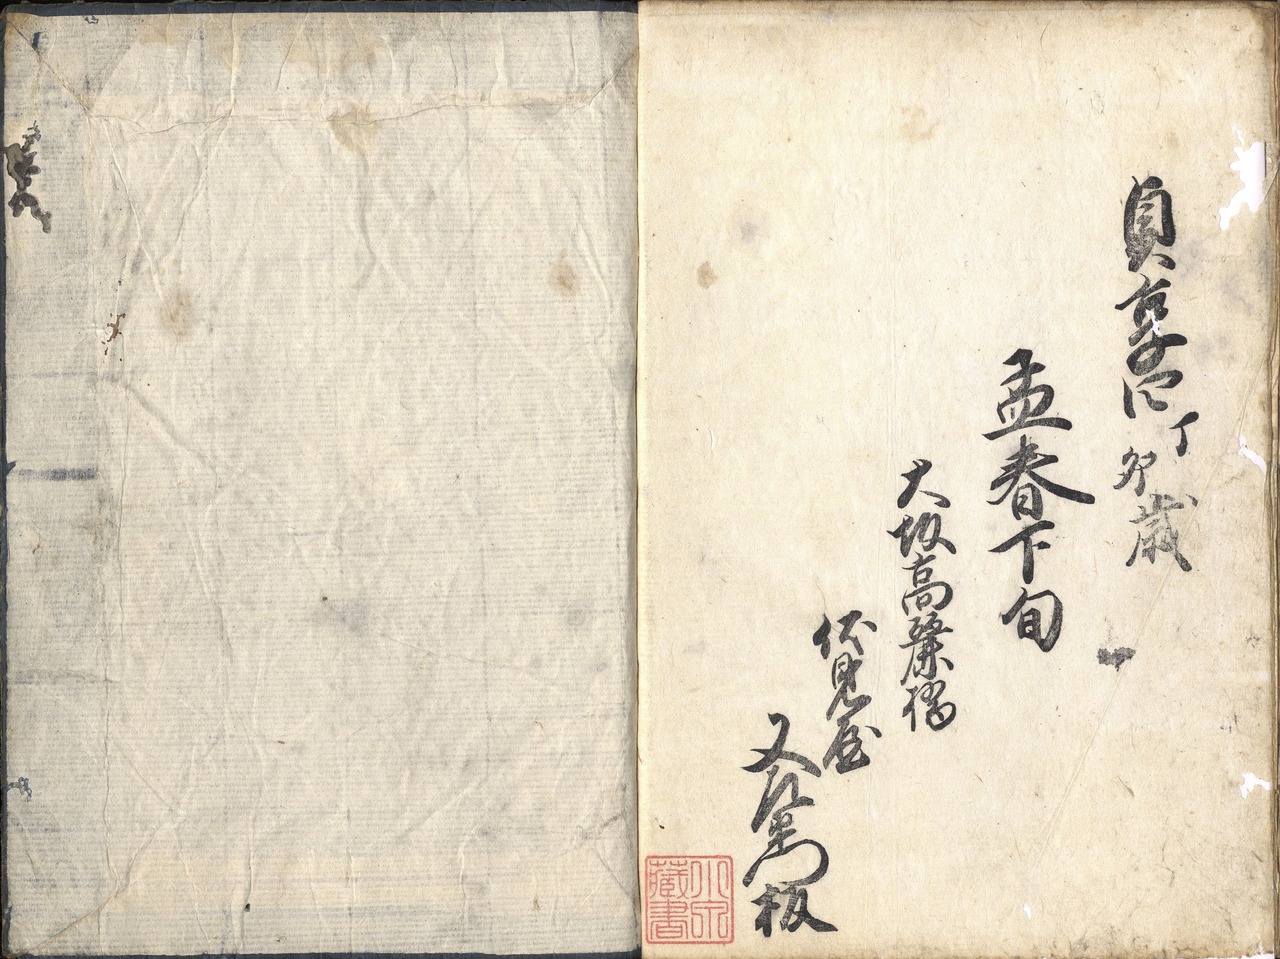 貞享四丁卯歳
孟春下旬
大坂高麗橋
伏見屋
又兵衛板
藏書